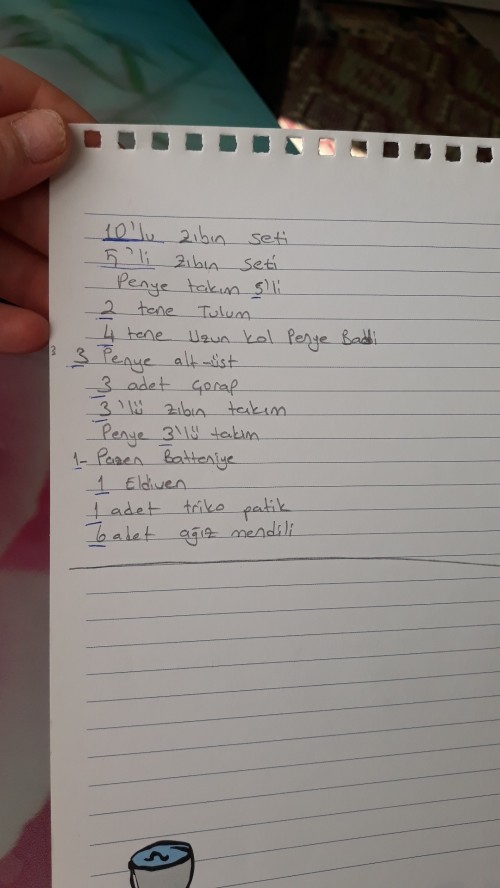 10'lu zıbın seti
5'li zıbın seti
Penye takım 5'li
2 tane Tulum
4 tane Uzun kol Penye Badi
3 3 Penye alt-üst
3 adet Çorap
3'lü zıbın takım
Penye 3'lü takım
1- Pazen Battaniye
1 Eldiven
1 adet triko patik
6 adet ağız mendili